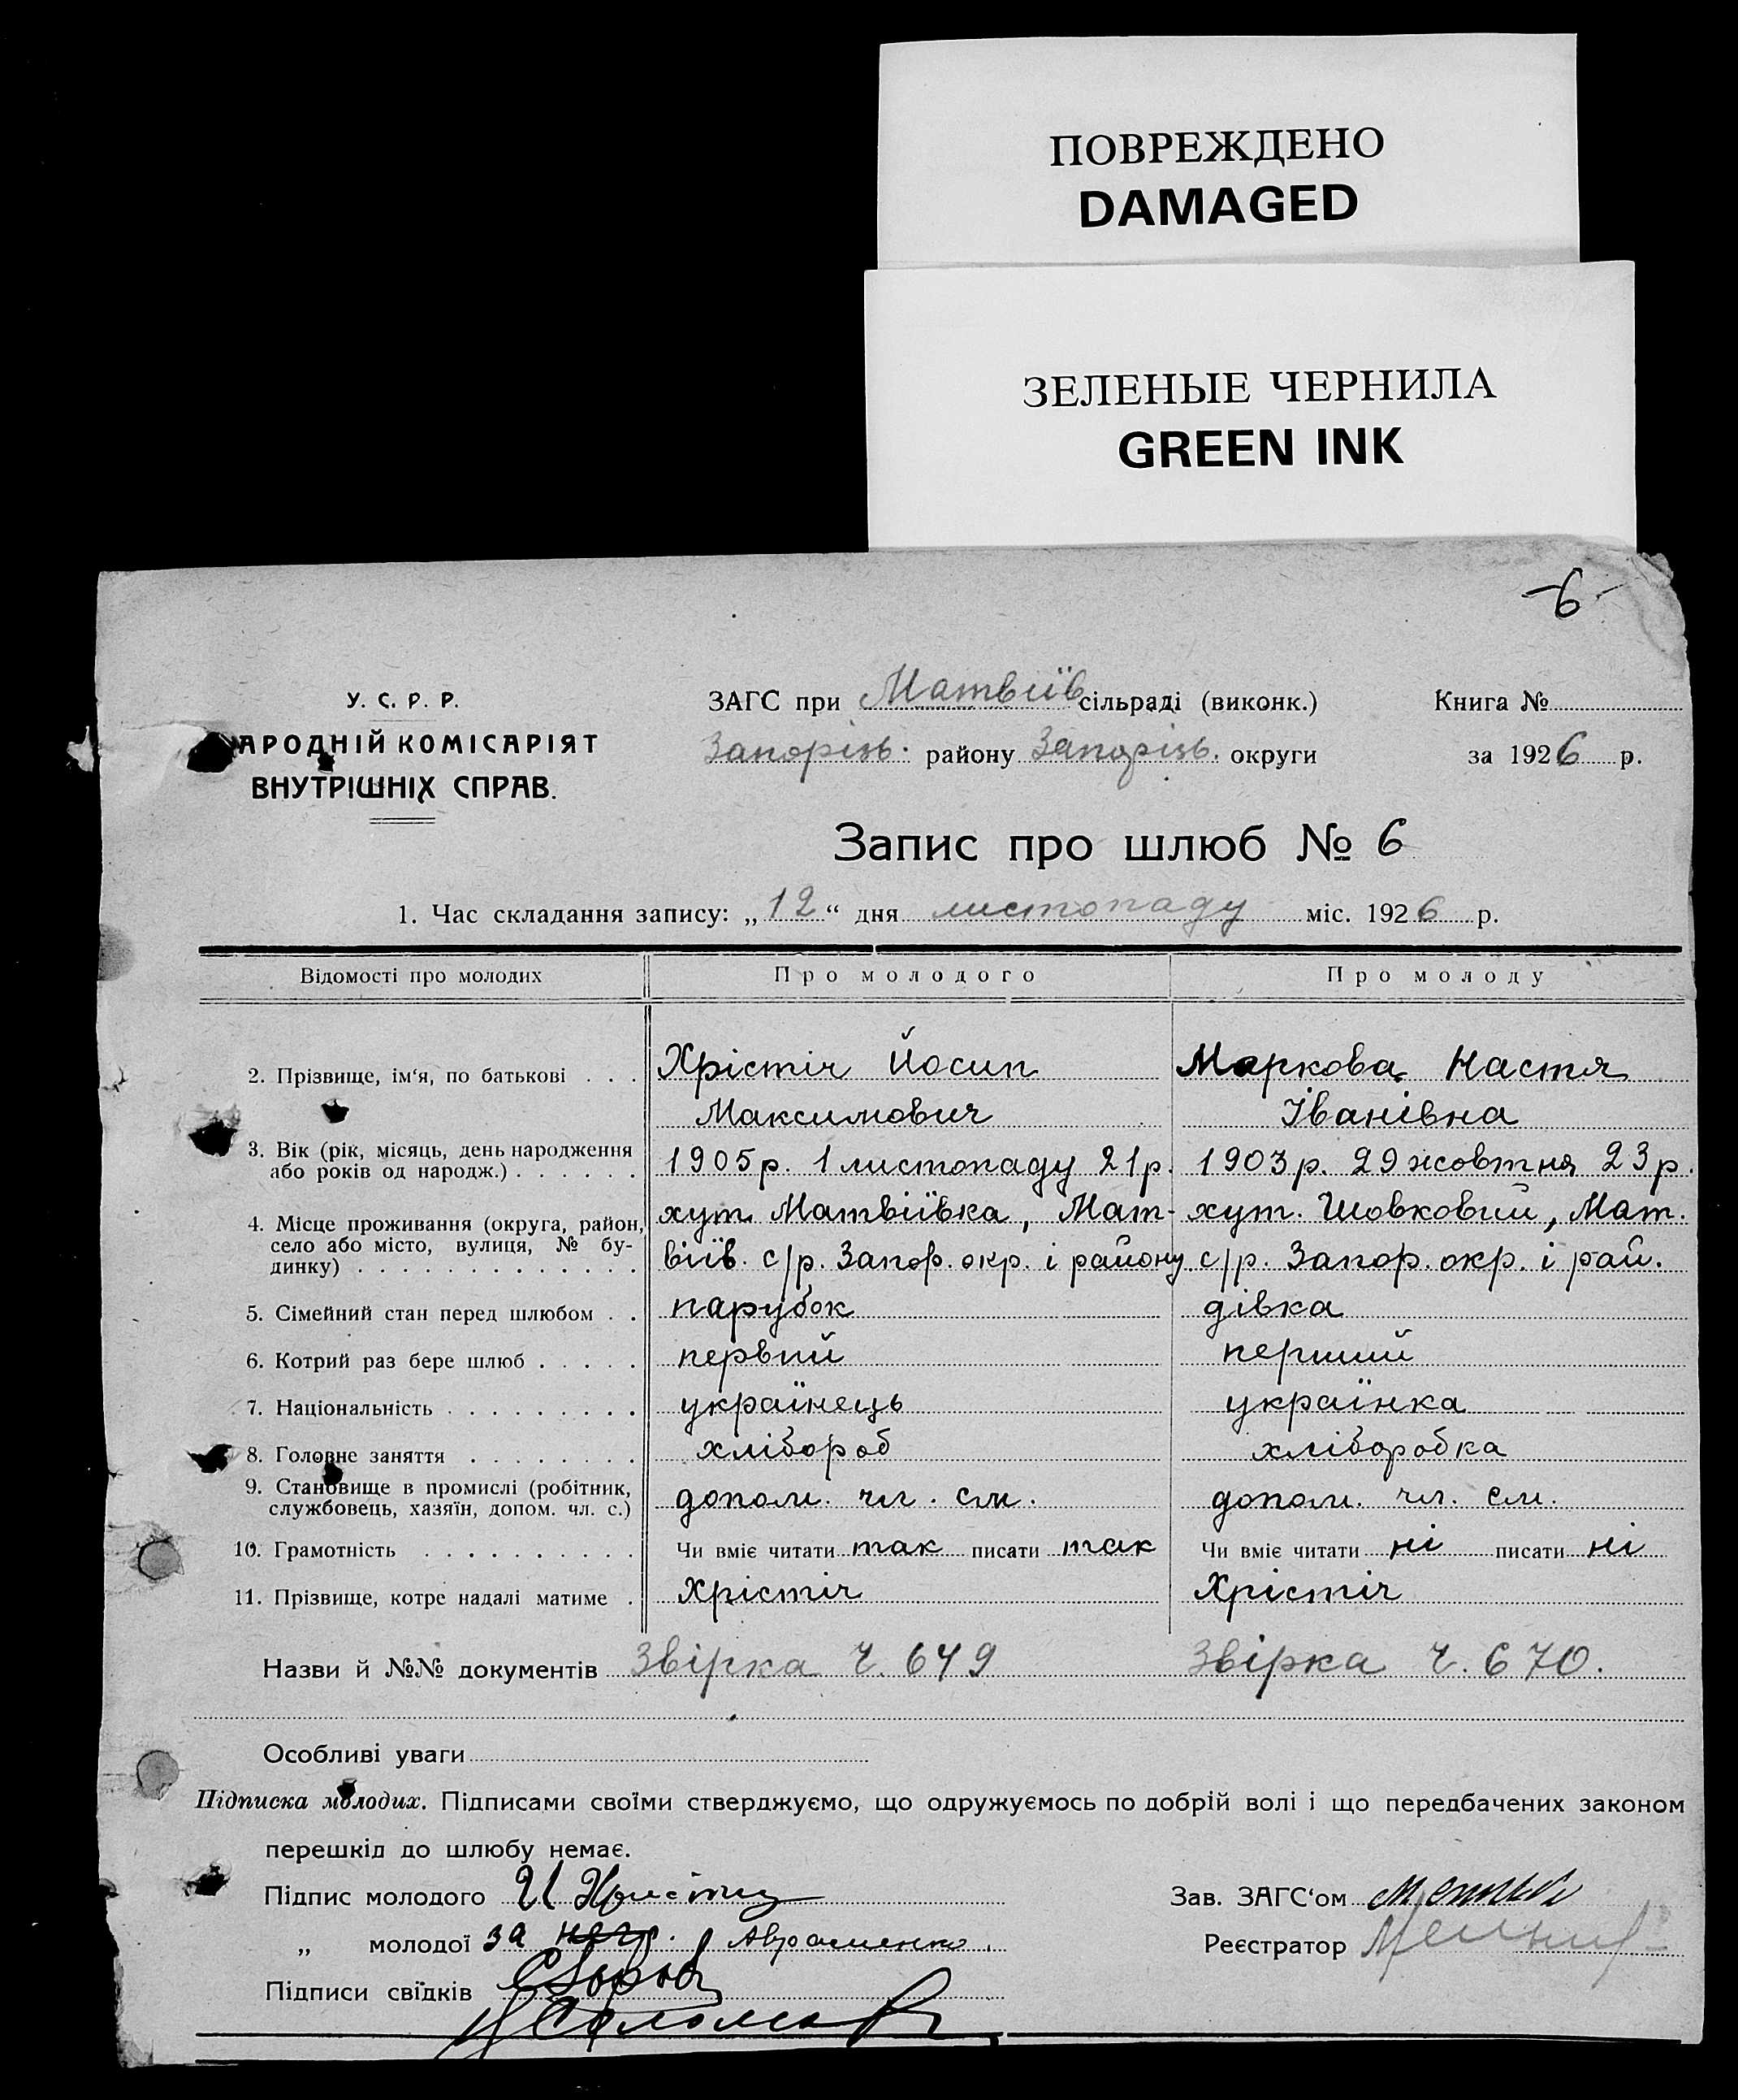 ПОВРЕЖДЕНО
DAMAGED
ЗЕЛЕНЫЕ ЧЕРНИЛА
GREEN INK
-6-
У. С. Р. Р.
АРОДНІЙ КОМІСАРІЯТ
ВНУТРІШНІХ СПРАВ.
ЗАГС при Матвіїв сільраді (виконк.)
Запорізь. району Запорізь. округи
Книга №
за 1926 р.
Запис про шлюб № 6
1. Час складання запису: „12“ дня листопаду міс. 1926 р.
Відомості про молодих Про молодого Про молоду
2. Прізвище, ім‘я, по батькові . . . Хрістіч Йосип Маркова Настя
Максимович Іванівна
3. Вік (рік, місяць, день народження
або років од народж.) . . . . . . 1905 р. 1 листопаду 21 р. 1903 р. 29 жовтня 23 р.
4. Місце проживання (округа, район, хут. Матвіївка, Мат- хут. Шовковий, Мат.
село або місто, вулиця, № бу-
динку) . . . . . . . . . . . . . віїв. с/р. Запор. окр. і району с/р. Запор. окр. і рай.
5. Сімейний стан перед шлюбом . . парубок дівка
6. Котрий раз бере шлюб . . . . . первий перший
7. Національність . . . . . . . . . українець українка
8. Головне заняття . . . . . . . . хлібороб хліборобка
9. Становище в промислі (робітник,
службовець, хазяїн, допом. чл. с.) допом. чл. см. допом. чл. см.
10. Грамотність . . . . . . . . . . Чи вміє читати так писати так Чи вміє читати ні писати ні
11. Прізвище, котре надалі матиме . Хрістіч Хрістіч
Назви й №№ документів Звірка ч. 649 Звірка ч. 670.
Особливі уваги
Підписка молодих. Підписами своїми стверджуємо, що одружуємось по добрій волі і що передбачених законом
перешкід до шлюбу немає.
Підпис молодого Зав. ЗАГС‘ом
„ молодої за Авраменко. Реєстратор
Підписи свідків